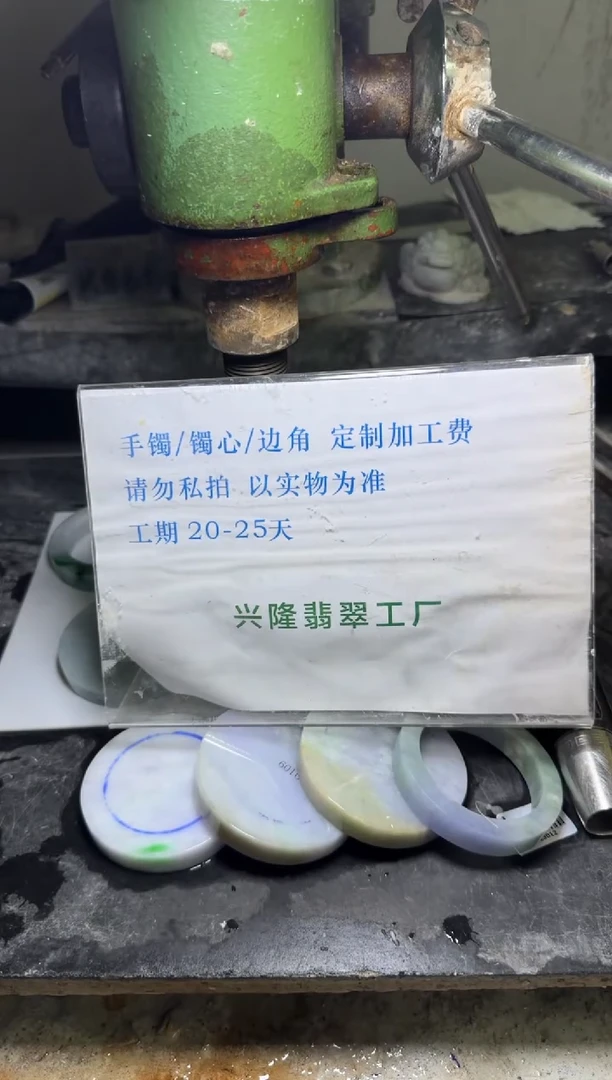 手镯/镯心/边角 定制加工费
请勿私拍 以实物为准
工期 20-25天
兴隆翡翠工厂
6016